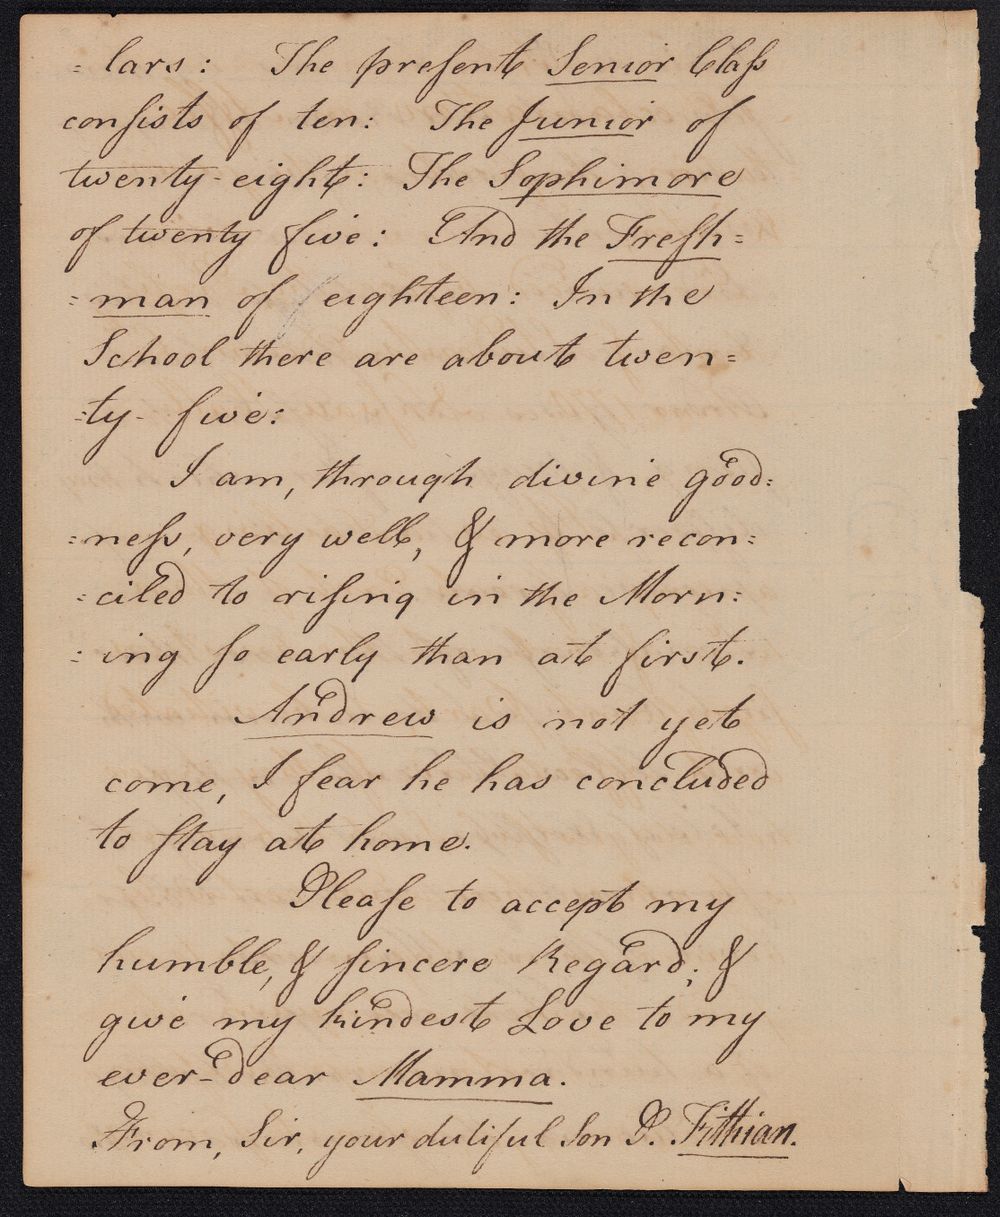 = lars: The preſent Senior Claſs
conſists of ten: The Junior of
twenty-eight: The Sophimore
of twenty five: And the Freſh=
=man of eighteen: In the
School there are about twen=
=ty-five:
I am, through divine good=
=neſs, very well, & more recon=
=ciled to riſing in the Morn=
=ing ſo early than at first.
Andrew is not yet
come, I fear he has concluded
to ſtay at home.
Pleaſe to accept my
humble, & ſincere Regard; &
give my kindest Love to my
ever-dear Mamma.
From, Sir, your dutiful Son P. Fithian.